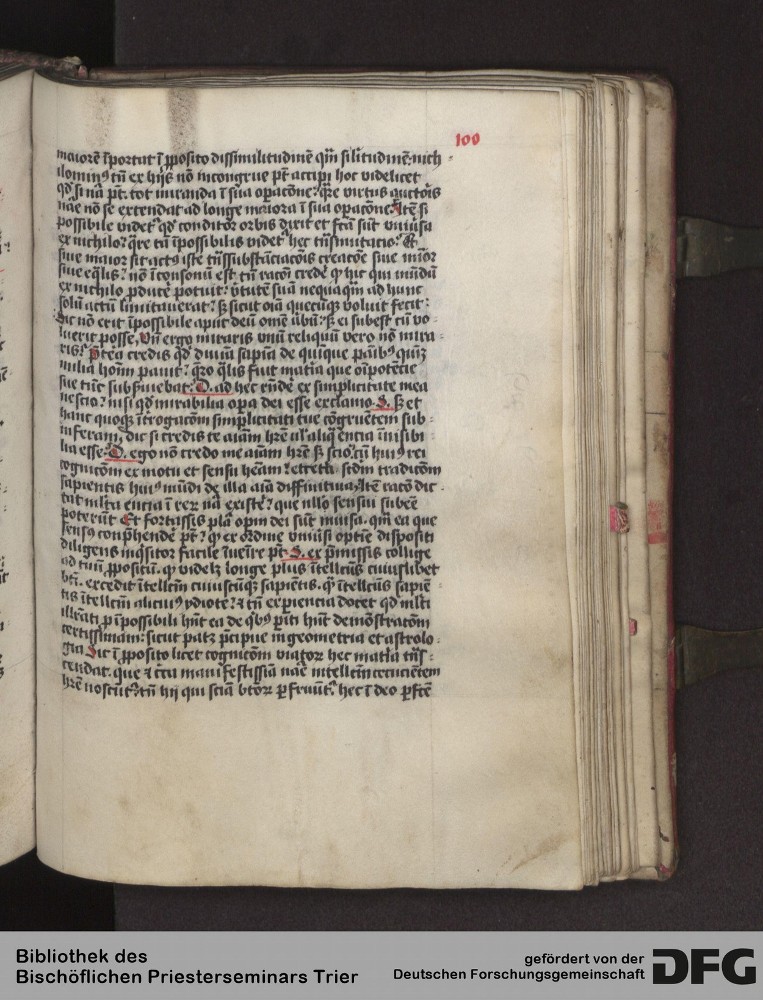 100
maiorē īportat ī ꝓposito dissimilitudinē qm̄ silitudinē: nich
ilomin⁹ tn̄ ex hijs nō incongrue pt̄ accipi hoc videlicet
qd̓ si nā pt̄. tot miranda ī sua opacōne? q̄re virtus auctoīs
nāe nō se extendat ad longe maiora ī sua opacōne. Itē si
possibile videt᷑ qd̓ conditor orbis dixit et fc̄ā sūt vniūsa
ex nichilo? q̄re tn̄ īpossibilis videt᷑ hec tn̄smutatio? Et
siue maior sit act⁹ iste tn̄ssubstāciacōīs creacōe siue mīor
siue eq̄lis? nō ī consonū est tn̄ racōī credē ꝙ hic qui mūdū
ex nichilo ꝓducē potuit? v̓tutē suā nequaqm̄ ad hunc
solū actū limitauerat? sꝫ sicut oīa quecūqꝫ voluit fecit:
Sic nō erit īpossibile aput deū omē ūbū? sꝫ ei subest cū vo
luerit posse. Vn̄ ergo miraris vnū reliquū vero nō mira
ris? P̄tea credis qd̓ diuīa sapīa de quīque pāib⁹ quīqꝫ
milia hoīm pauit? q̄ro q̄lis fuit matīa que oīpotēcie
sue tūc subseruiebat. D. ad hec rn̄dē ex simplicitate mea
nescio? nisi qd̓ mirabilia opa dei esse exclamo. S. sꝫ et
hanc quoqꝫ īt̓rogacōm simplicitati tue cōgruētem sub
inferam, dic si credis te aīam hr̄e ul̓ aliq̄ entia īuisibi
lia esse. D. ego nō credo me aīam hr̄e sꝫ scio. cū hui⁹ rei
cognicōm ex motu et sensu hēam? etc̄
sapientis hui⁹ mūdi de illa aīa diffinitiua. Itē racō dic
tat ml̓ta entia ī rex nā existē? que nllo sensui subēē
poterūt Et fortassis pl̓a opm dei sūt īuisa. qm̄ ea que
sens⁹ conp̄hendē pt̄? ꝙ ex ordine vniūsi optīe dispositi
diligens inq̄sitor facile īuenīre pt̄. S. ex p̄missis collige
ad tuū ꝓpositū. ꝙ videlꝫ longe plus ītellcūs cuiuslibet
bt̄i. excedit ītellcm̄ cuiuscūqꝫ sapiētis. q̄ ītellcūs sapiē
tis ītellcm̄ alicui⁹ ydiote? ⁊ tn̄ expiencia docet qd̓ ml̓ti
ill̓rati p īpossibili hn̄t ea de q̄b⁹ piti hn̄t demōstratōm
certissimam: sicut patꝫ p̄cipue in geometria et astrolo
gia Sic ī ꝓposito licet cognicōm viatoꝝ hec matīa tn̄s
cendat. que ⁊ c̄tra manifestissīa nāe intellcm̄ cecuciētem
hr̄e noscūt᷑? tn̄ hij qui sciā btōꝝ pfruūt᷑? hec ī deo pfcē
Bibliothek des
Bischöflichen Priesterseminars Trier
gefördert von der
Deutschen Forschungsgemeinschaft
DFG